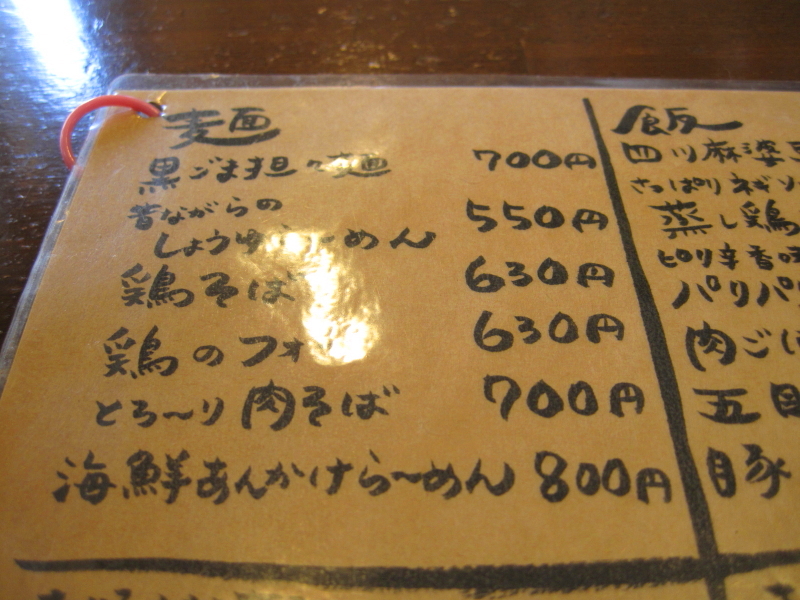 麺
黒ごま担々麺 700円
昔ながらの
しょうゆらーめん 550円
鶏そば 630円
鶏のフォー 630円
とろ〜り肉そば 700円
海鮮あんかけら〜めん 800円
飯
四川麻婆豆
さっぱりネギソ
蒸し鶏
ピリ辛香味
パリパリ
肉ごは
五目
豚